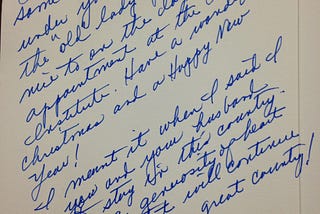 some
under yo
the old lady
nice to on the da
appointment at the
Institute. Have a wonde
Christmas and a Happy New
Year!
I meant it when I said I
you and your husband
stay in this country.
generosity of heart
t will continue
great country!